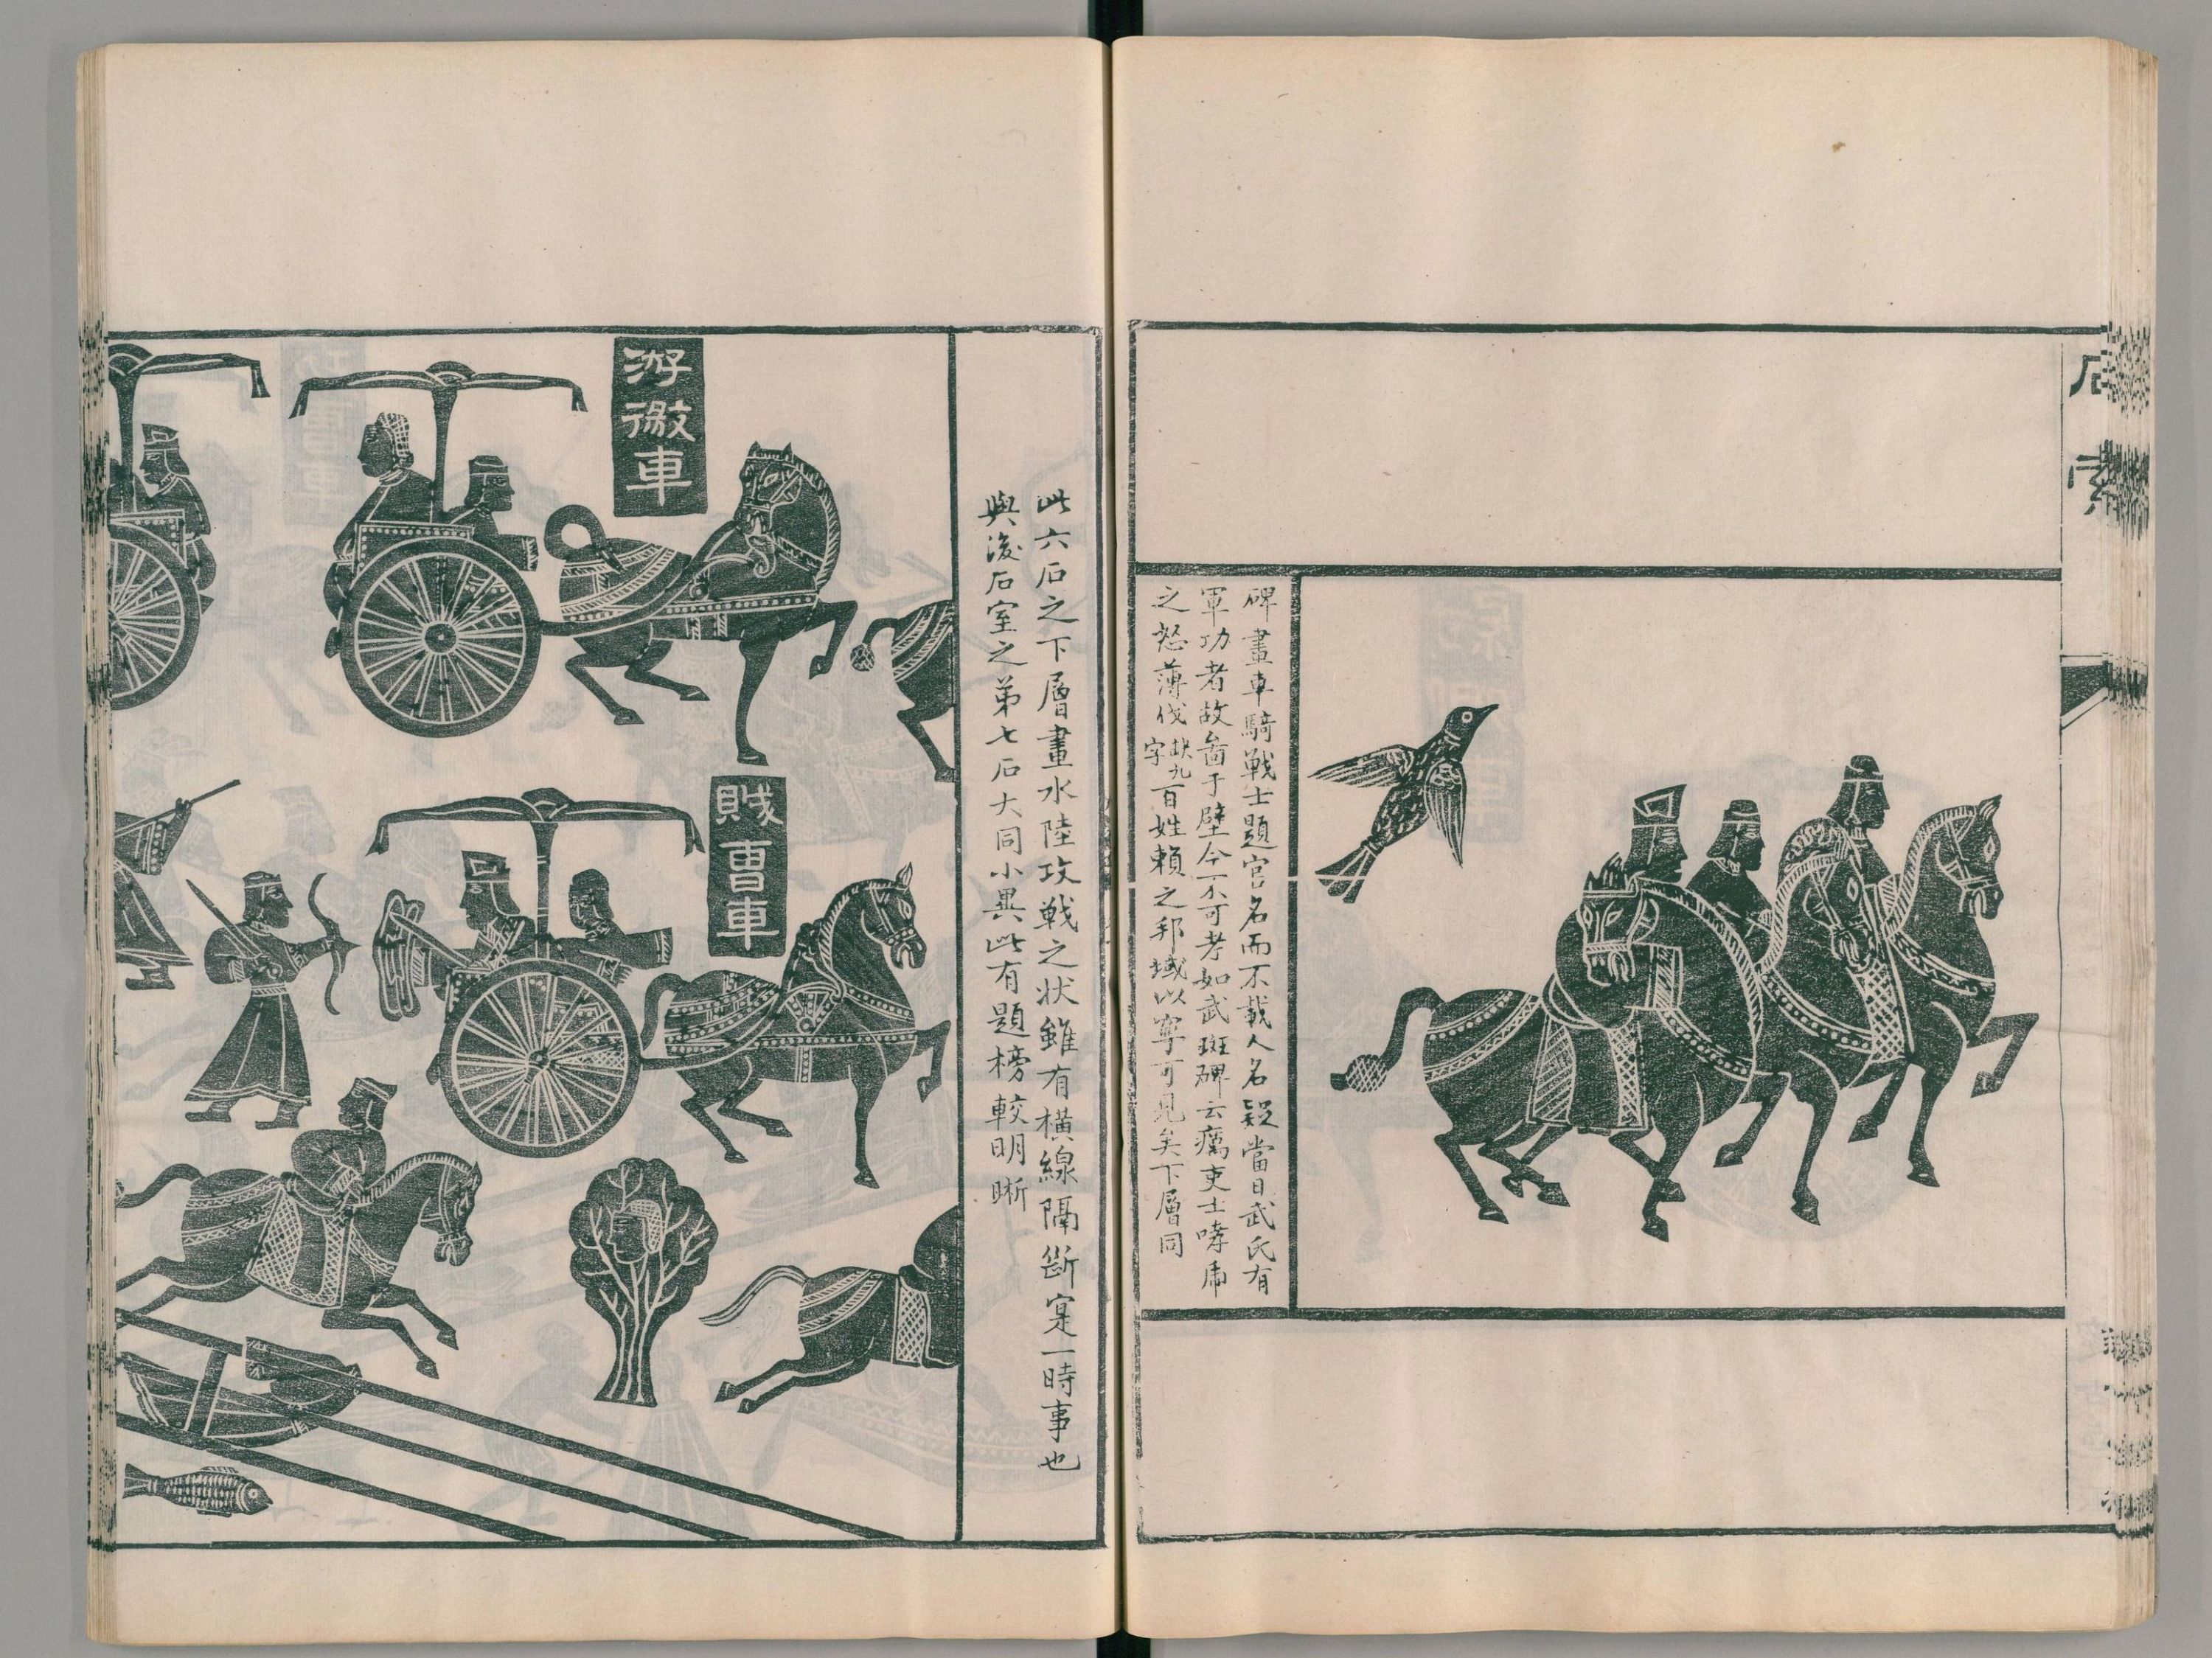 石索
碑畫車騎戰士題官名而不載人名疑當日武氏有
軍功者故啚于壁今不可考如武斑碑云癘吏士哮虎
之怒薄伐缺九字百姓賴之邦域以寧可見矣下層同
此六石之下層畫水陸攻戰之狀雖有橫線隔斷寔一時事也
與後石室之弟七石大同小異此有題榜較明晰
游徼車
賊曹車